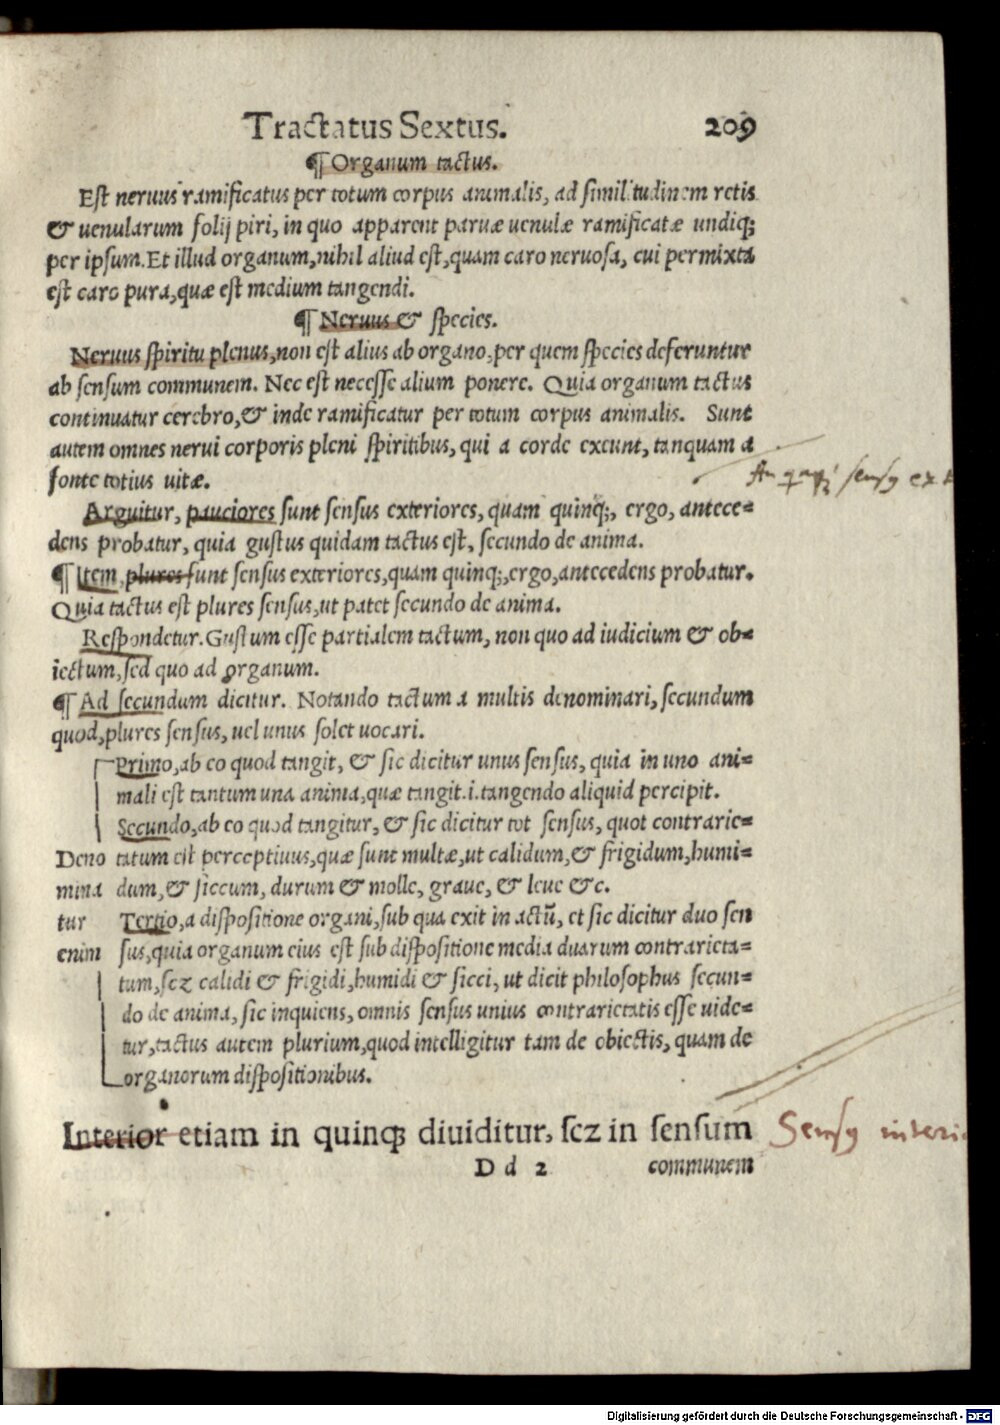 Tractatus Sextus. 209
¶ Organum tactus.
Est neruus ramificatus per totum corpus animalis, ad similitudinem retis
& uenularum folij piri, in quo apparent paruæ uenulæ ramificatæ undiq;
per ipsum. Et illud organum, nihil aliud est, quam caro neruosa, cui permixta
est caro pura, quæ est medium tangendi.
¶ Neruus & species.
Neruus spiritu plenus, non est alius ab organo, per quem species deferuntur
ab sensum communem. Nec est necesse alium ponere. Quia organum tactus
continuatur cerebro, & inde ramificatur per totum corpus animalis. Sunt
autem omnes nerui corporis pleni spiritibus, qui a corde exeunt, tanquam a
fonte totius uitæ.
Arguitur, pauciores sunt sensus exteriores, quam quinq;, ergo, antece=
dens probatur, quia gustus quidam tactus est, secundo de anima.
¶ Item, plures sunt sensus exteriores, quam quinq;, ergo, antecedens probatur.
Quia tactus est plures sensus, ut patet secundo de anima.
Respondetur. Gustum esse partialem tactum, non quo ad iudicium & ob=
iectum, sed quo ad organum.
¶ Ad secundum dicitur. Notando tactum a multis denominari, secundum
quod, plures sensus, uel unus solet uocari.
Primo, ab eo quod tangit, & sic dicitur unus sensus, quia in uno ani=
mali est tantum una anima, quæ tangit .i. tangendo aliquid percipit.
Secundo, ab eo quod tangitur, & sic dicitur tot sensus, quot contrarie=
Deno tatum est perceptiuus, quæ sunt multæ, ut calidum, & frigidum, humi=
mina dum, & siccum, durum & molle, graue, & leue &c.
tur Tertio, a dispositione organi, sub qua exit in actū, et sic dicitur duo sen
enim sus, quia organum eius est sub dispositione media duarum contrarieta=
tum, scz calidi & frigidi, humidi & sicci, ut dicit philosophus secun=
do de anima, sic inquiens, omnis sensus unius contrarietatis esse uide=
tur, tactus autem plurium, quod intelligitur tam de obiectis, quam de
organorum dispositionibus.
Interior etiam in quinq; diuiditur, scz in sensum
Sensq interi
D d 2 communem
Digitalisierung gefördert durch die Deutsche Forschungsgemeinschaft - DFG